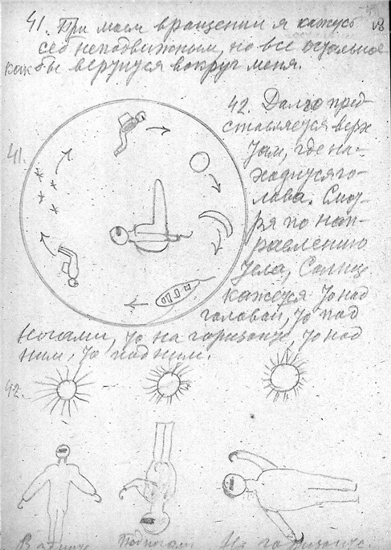 41. При моем вращении я кажусь
себе неподвижным, но все остальное
как бы вертится вокруг меня.
41.
42. Далее пред-
ставляется верх
там, где на-
ходится го-
лова. Смот-
ря по нап-
равлению
тела, Солнце
кажется то над
головой, то под
ногами, то на горизонте, то над
ним, то под ним.
42.
Под ногами
На горизонте